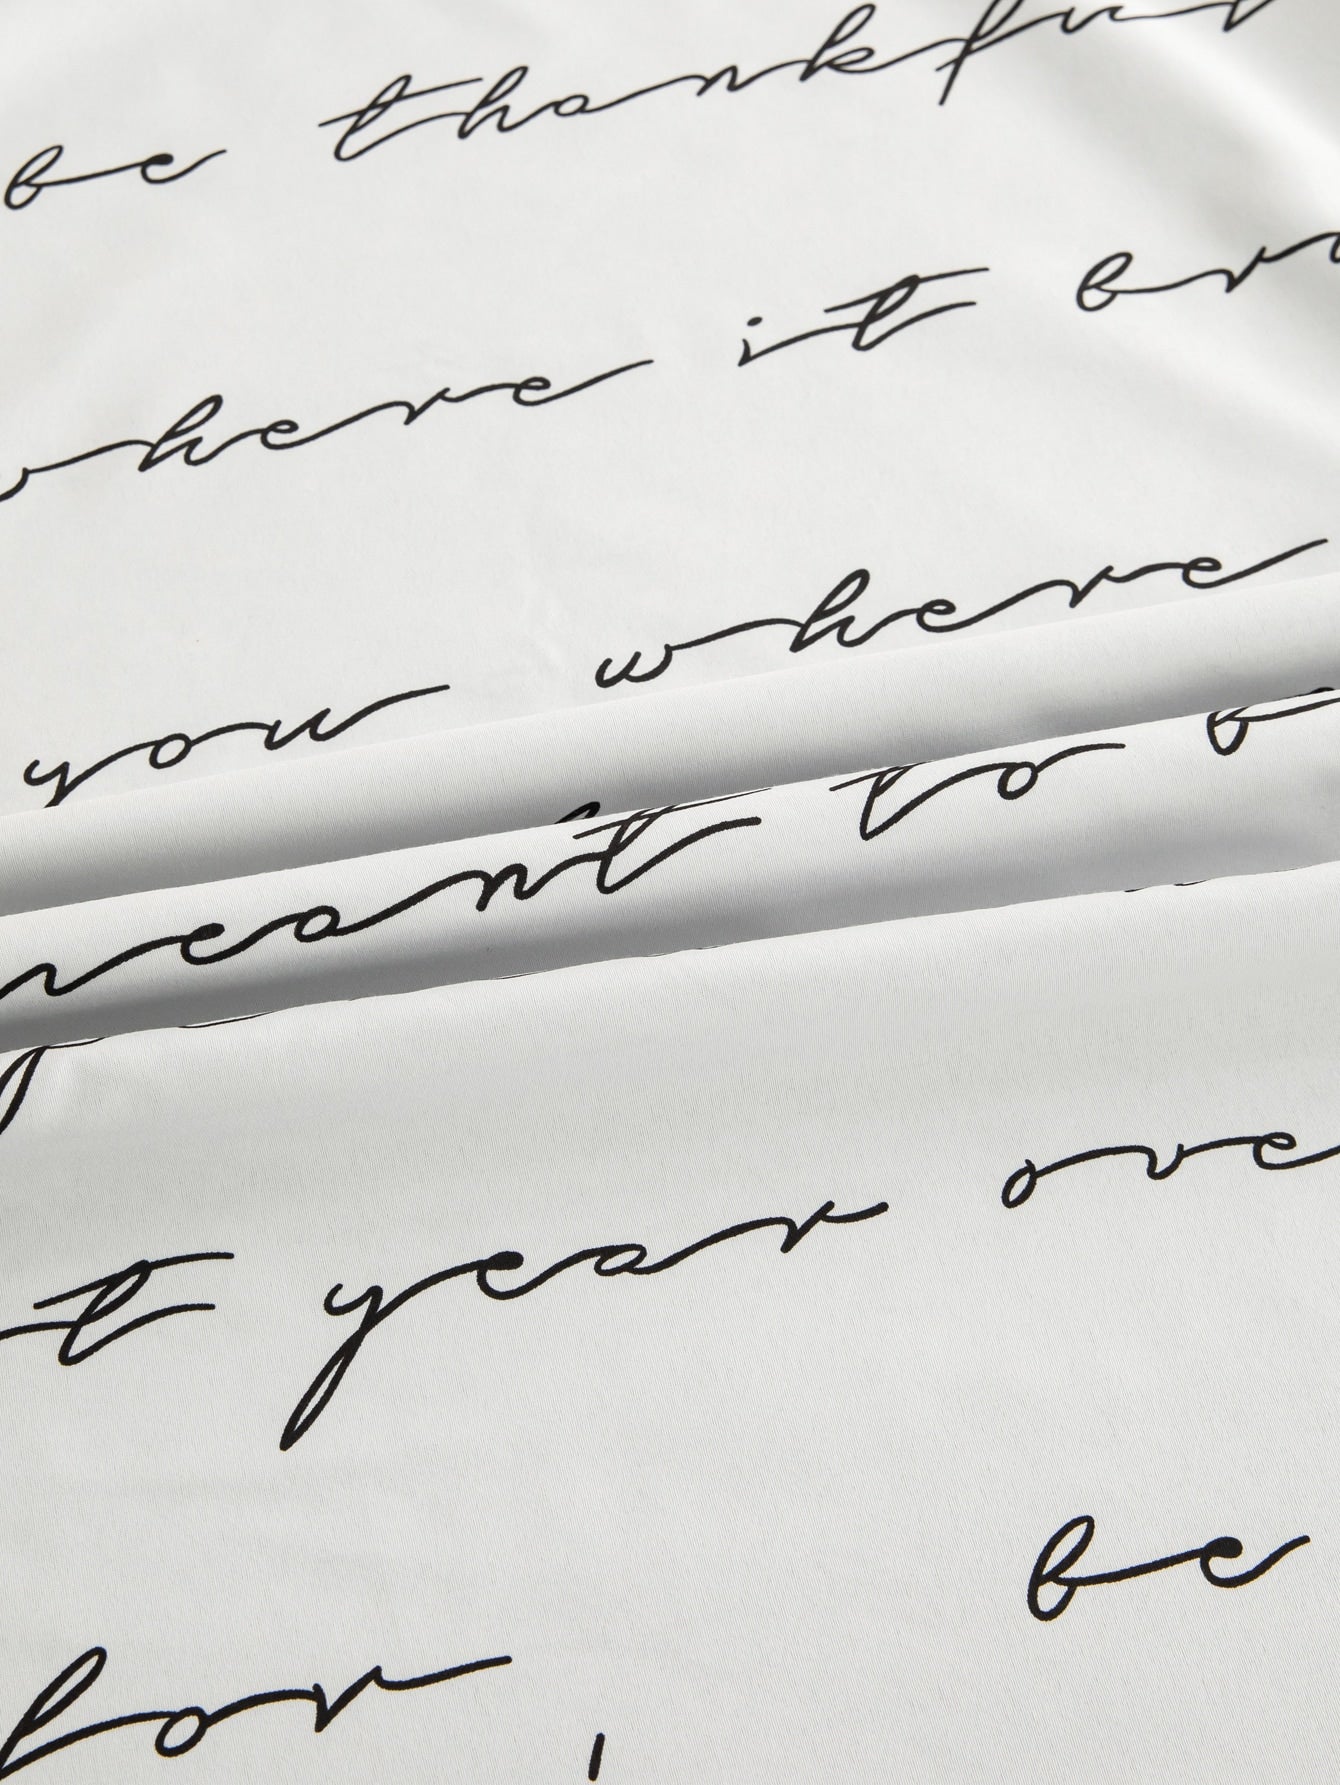 be thankful
where it
you where
meant to
year
for, be